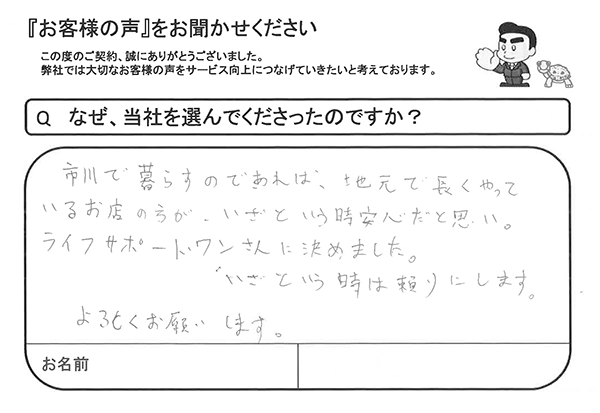 『お客様の声』をお聞かせください
この度のご契約、誠にありがとうございました。
弊社では大切なお客様の声をサービス向上につなげていきたいと考えております。
Q なぜ、当社を選んでくださったのですか？
市川で暮らすのであれば、地元で長くやって
いるお店の方が、いざという時安心だと思い。
ライフサポート・ワンさんに決めました。
いざという時は頼りにします。
よろしくお願いします。
お名前